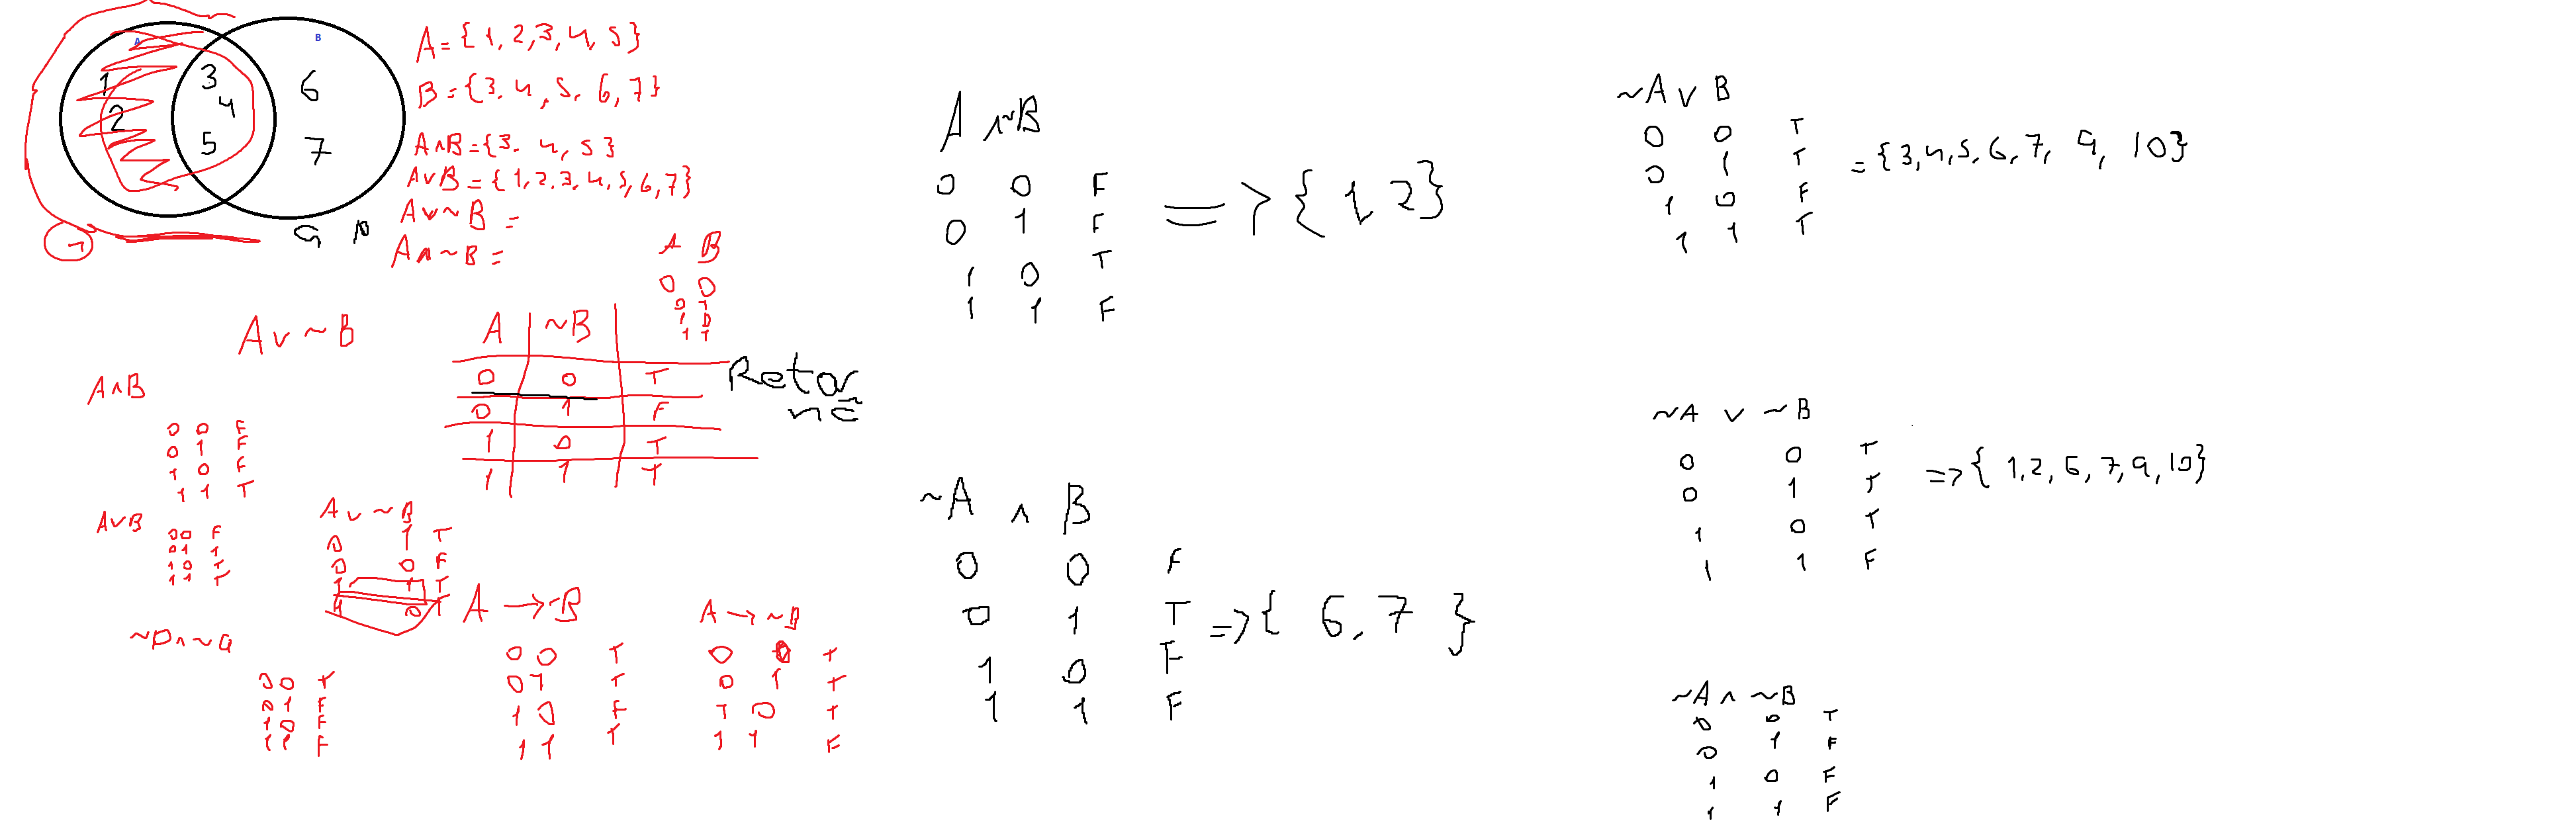 A B
1 3 6
2 4
5 7
9 10
A = {1,2,3,4,5}
B = {3.4,5.6,7}
A∧B = {3.4,5}
A∨B = {1,2.3.4.5,6,7}
A∨~B =
A∧~B =
A B
0 0
0 1
1 0
1 1
A∨~B
A ~B
0 0 T
0 1 F
1 0 T
1 1 T
Retor
nē
A∧B
0 0 F
0 1 F
1 0 F
1 1 T
A∨B
00 F
01 1
10 T
11 T
A∨~B
0 1 T
0 0 F
1 1 T
1 0 T
~p∧~q
00 T
01 F
10 F
11 F
A→B
0 0 T
0 1 T
1 0 F
1 1 T
A→~B
0 0 T
0 1 T
1 0 T
1 1 F
A∧~B
0 0 F
0 1 F => {1,2}
1 0 T
1 1 F
~A∧B
0 0 F
0 1 T => {6,7}
1 0 F
1 1 F
~A∨B
0 0 T
0 1 T = {3,4,5,6,7,9,10}
1 0 F
1 1 T
~A∨~B
0 0 T => {1,2,6,7,9,10}
0 1 T
1 0 T
1 1 F
~A∧~B
0 0 T
0 1 F
1 0 F
1 1 F